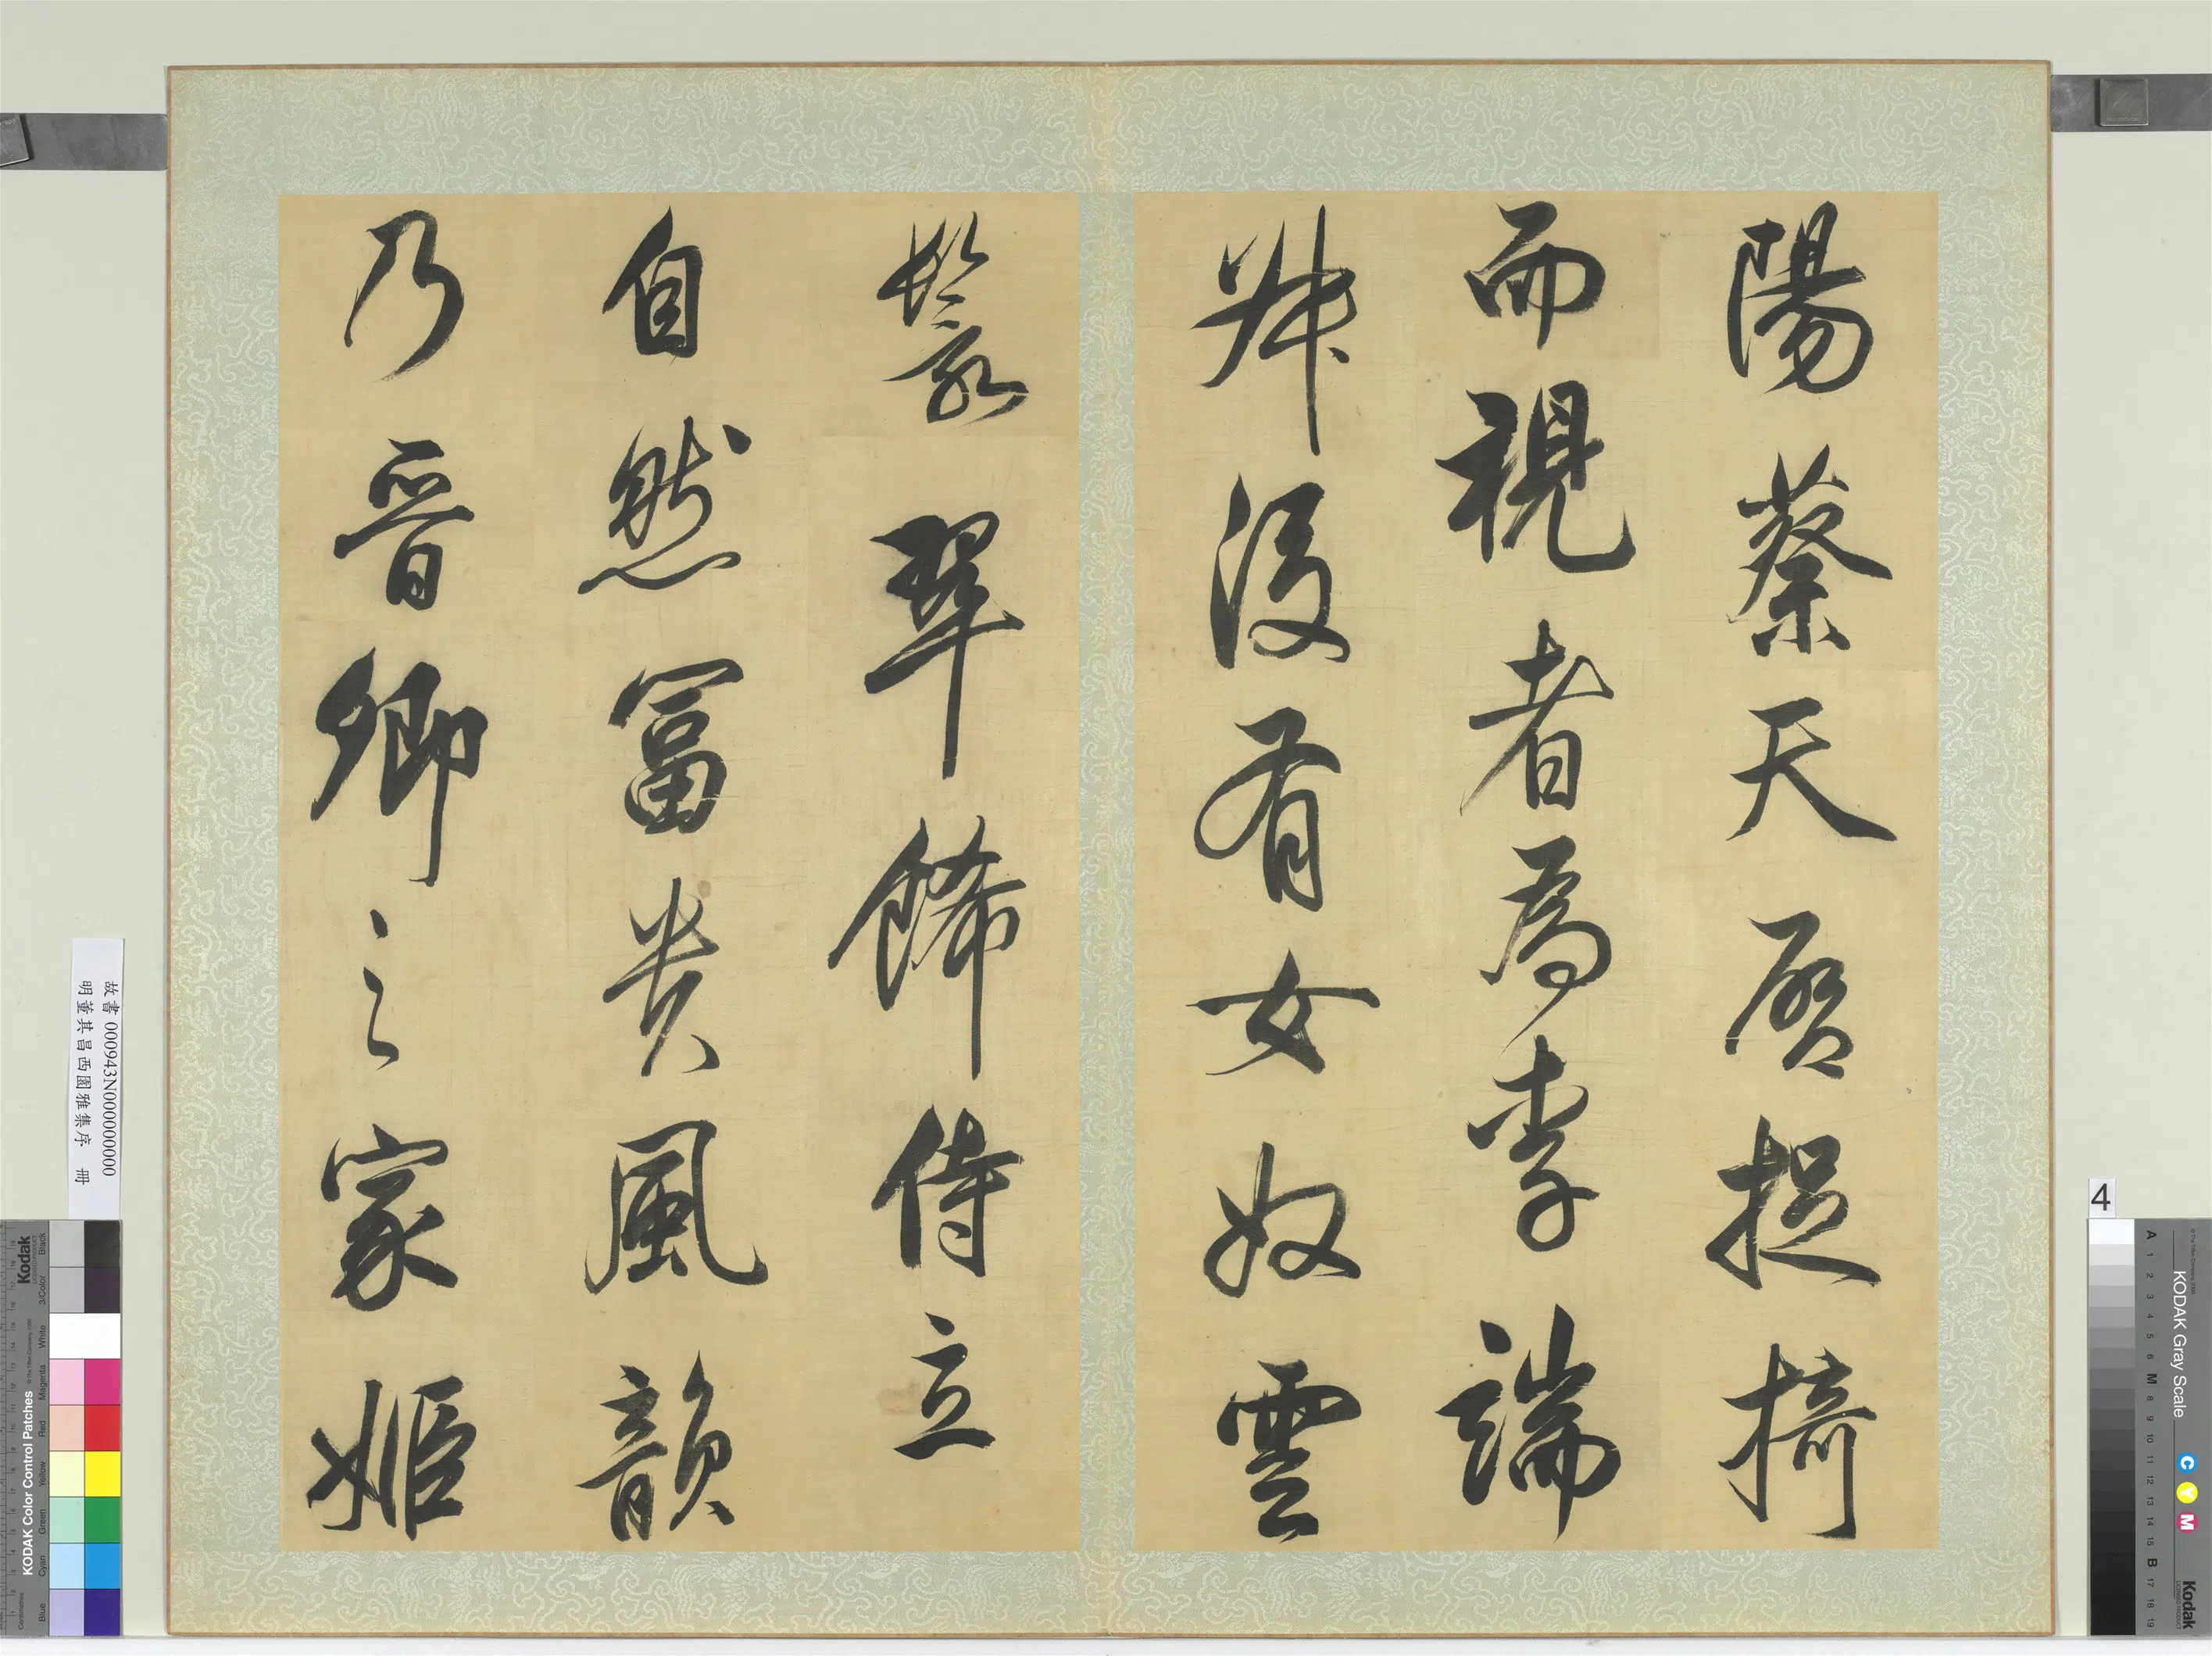 陽蔡天啓捉椅
而視者為李端
叔後有女奴雲
鬟翠飾侍立
自然冨貴風韻
乃晉卿之家姬
故書 000943N000000000
明董其昌西園雅集序 冊
Kodak
KODAK Color Control Patches
Blue Cyan Green Yellow Red Magenta White 3/Color Black
4
KODAK Gray Scale
C Y M
Kodak
A 1 2 3 4 5 6 M 8 9 10 11 12 13 14 15 B 17 18 19